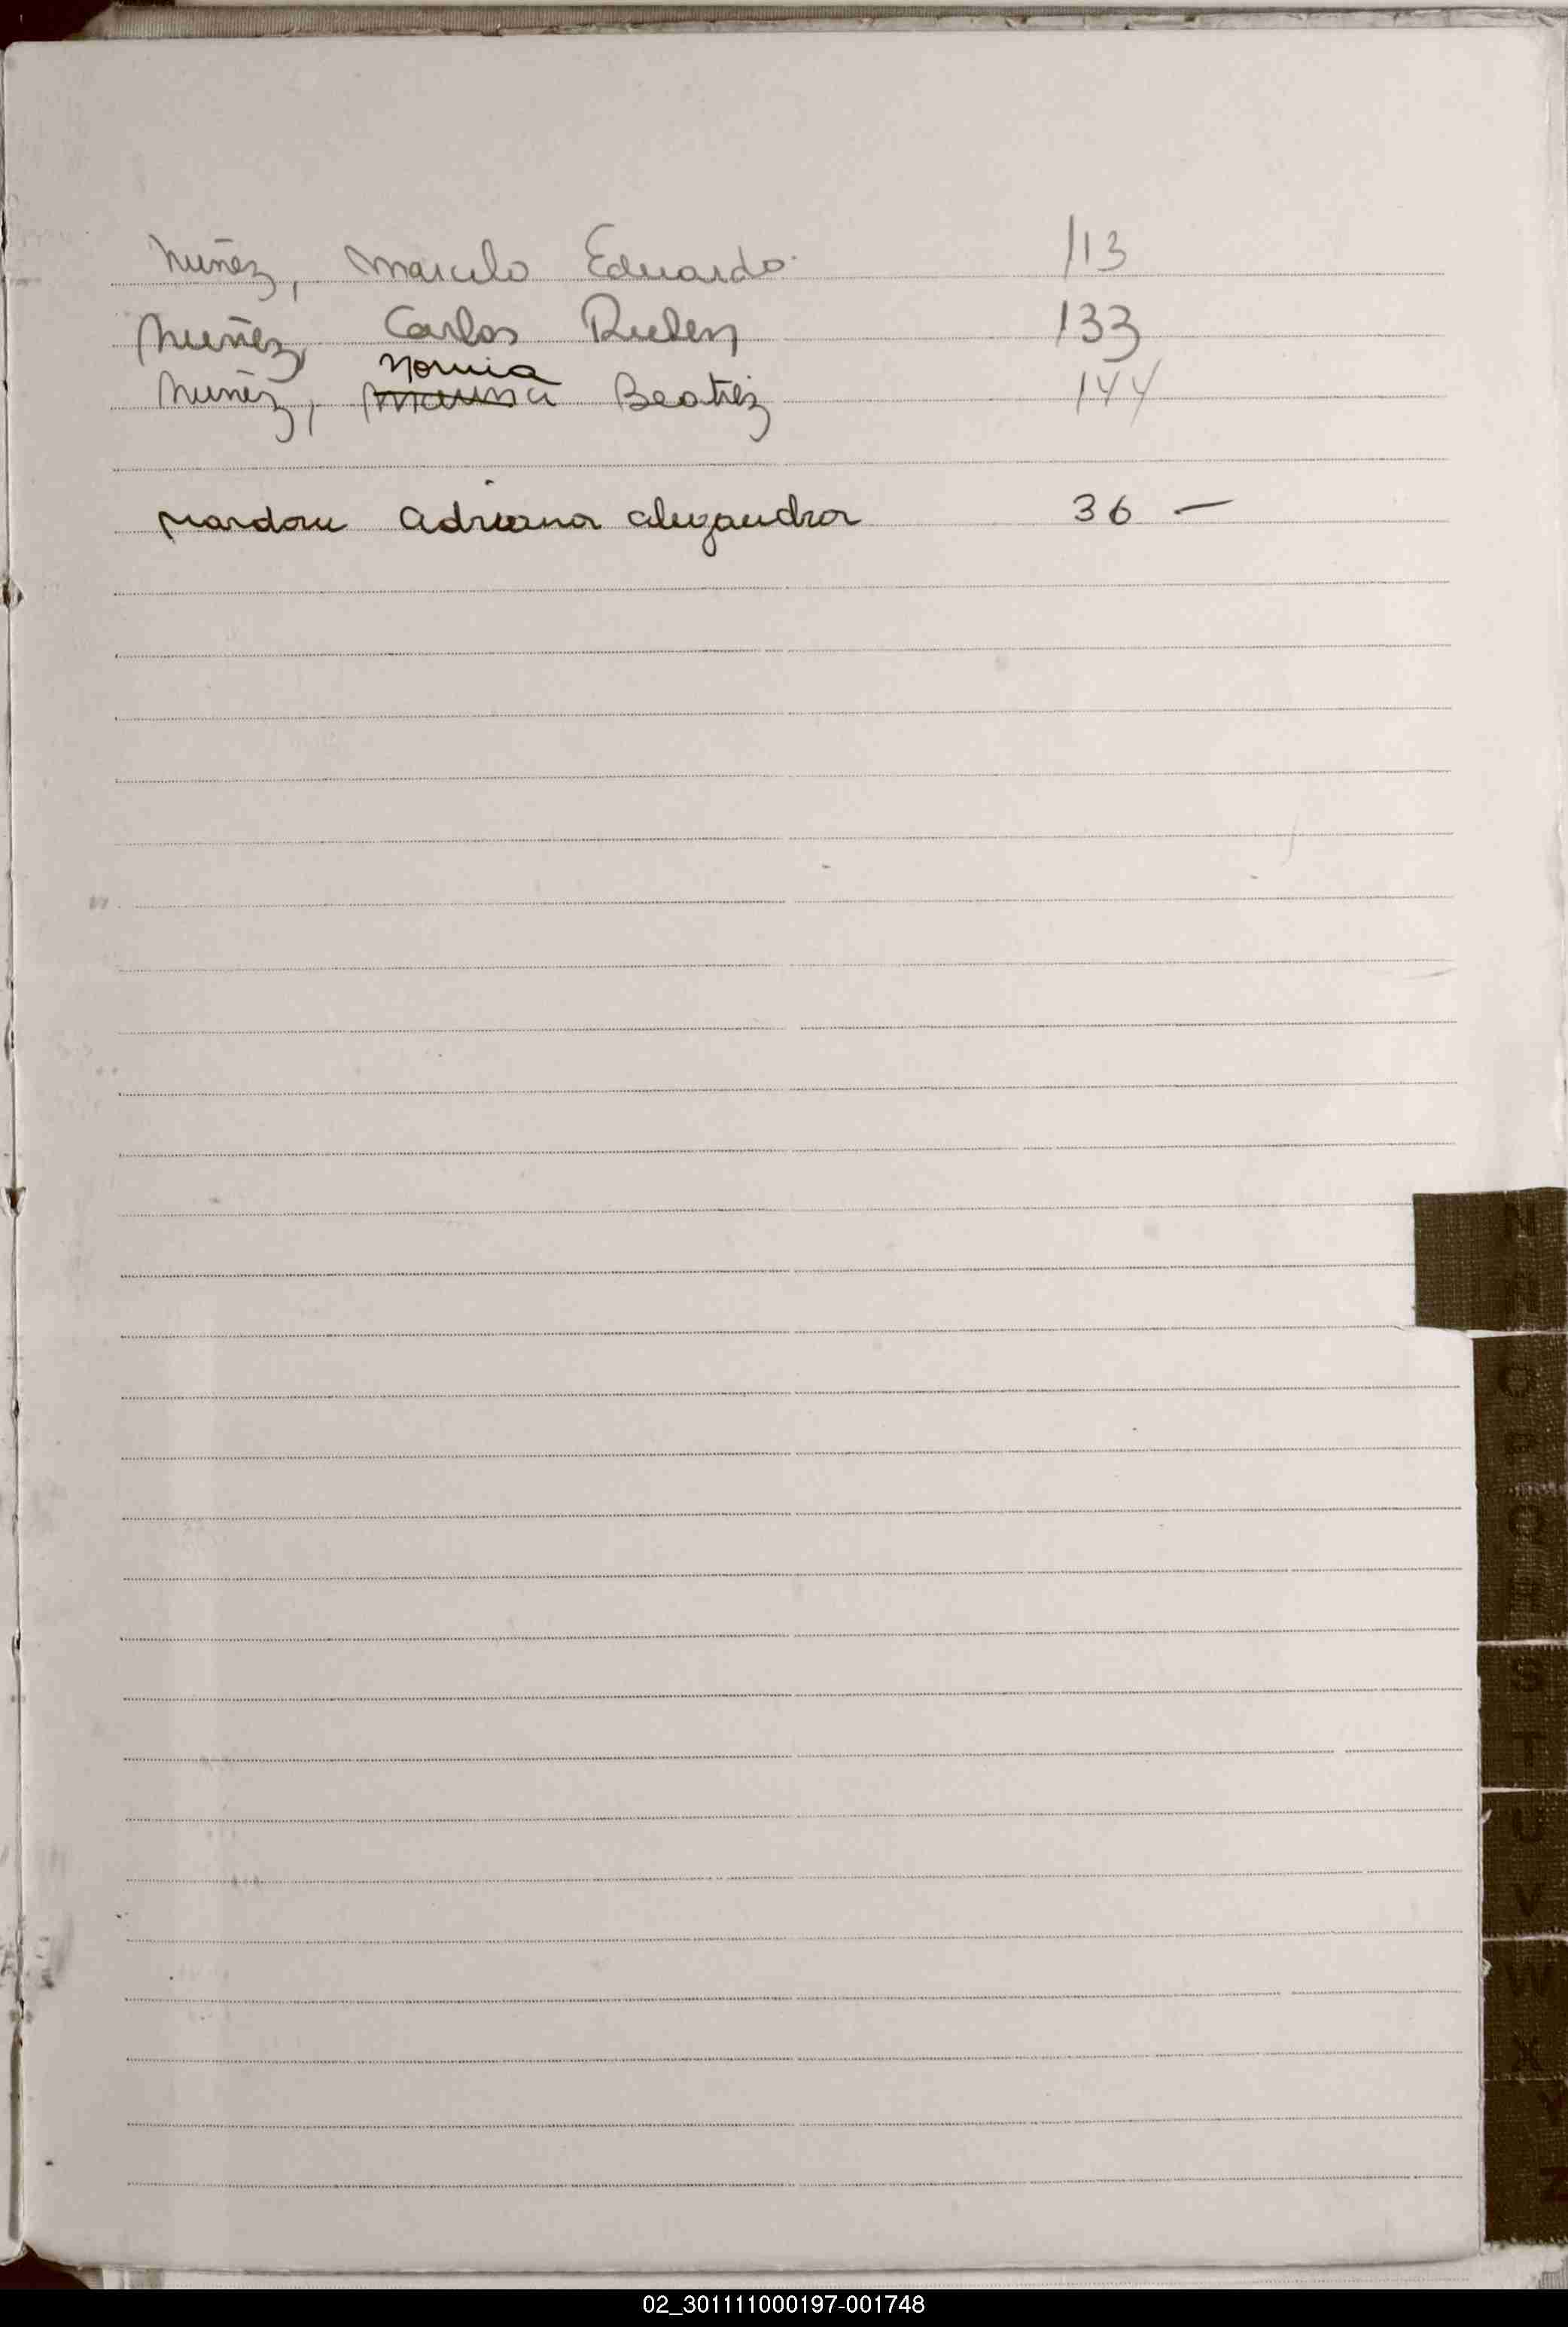 Nuñez, Marcelo Eduardo. 113
Nuñez, Carlos Ruben 133
Norma
Nuñez, Beatriz 144
Nardone Adriana Alejandra 36 —
N
Ñ
O
P
Q
R
S
T
U
V
W
X
Y
Z
02_301111000197-001748